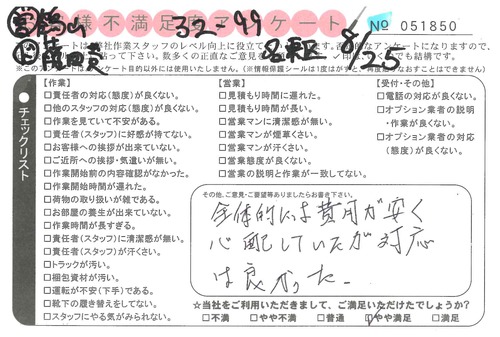 様不満足度アンケート
32-99
No 051850
ケートは弊社作業スタッフのレベル向上に役立て
8/25
※このアンケートは
チェックリスト
【作業】
□責任者の対応(態度)が良くない。
□他のスタッフの対応(態度)が良くない。
□作業を見ていて不安がある。
□責任者(スタッフ)に好感が持てない。
□お客様への挨拶が出来ていない。
□ご近所への挨拶・気遣いが無い。
□作業開始前の内容確認がなかった。
□作業開始時間が遅れた。
□荷物の取り扱いが雑である。
□お部屋の養生が出来ていない。
□作業時間が長すぎる。
□責任者(スタッフ)に清潔感が無い。
□責任者(スタッフ)が汗くさい。
□トラックが汚い。
□梱包資材が汚い。
□運転が不安(下手)である。
□靴下の履き替えをしてない。
□スタッフにやる気がみられない。
【営業】
□見積もり時間に遅れた。
□見積もり時間が長い。
□営業マンに清潔感が無い。
□営業マンが煙草くさい。
□営業マンが汗くさい。
□営業態度が良くない。
□営業の説明と作業が一致してない。
【受付・その他】
□電話の対応が良くない。
□オプション業者の説明
・作業が良くない。
□オプション業者の対応
(態度)が良くない。
その他、ご意見・ご要望等ありましたらお書き下さい。
全体的には費用が安く
心配していたが対応
は良かった。
☆当社をご利用いただきまして、ご満足いただけたでしょうか?
□不満 □やや不満 □普通 □やや満足 □満足